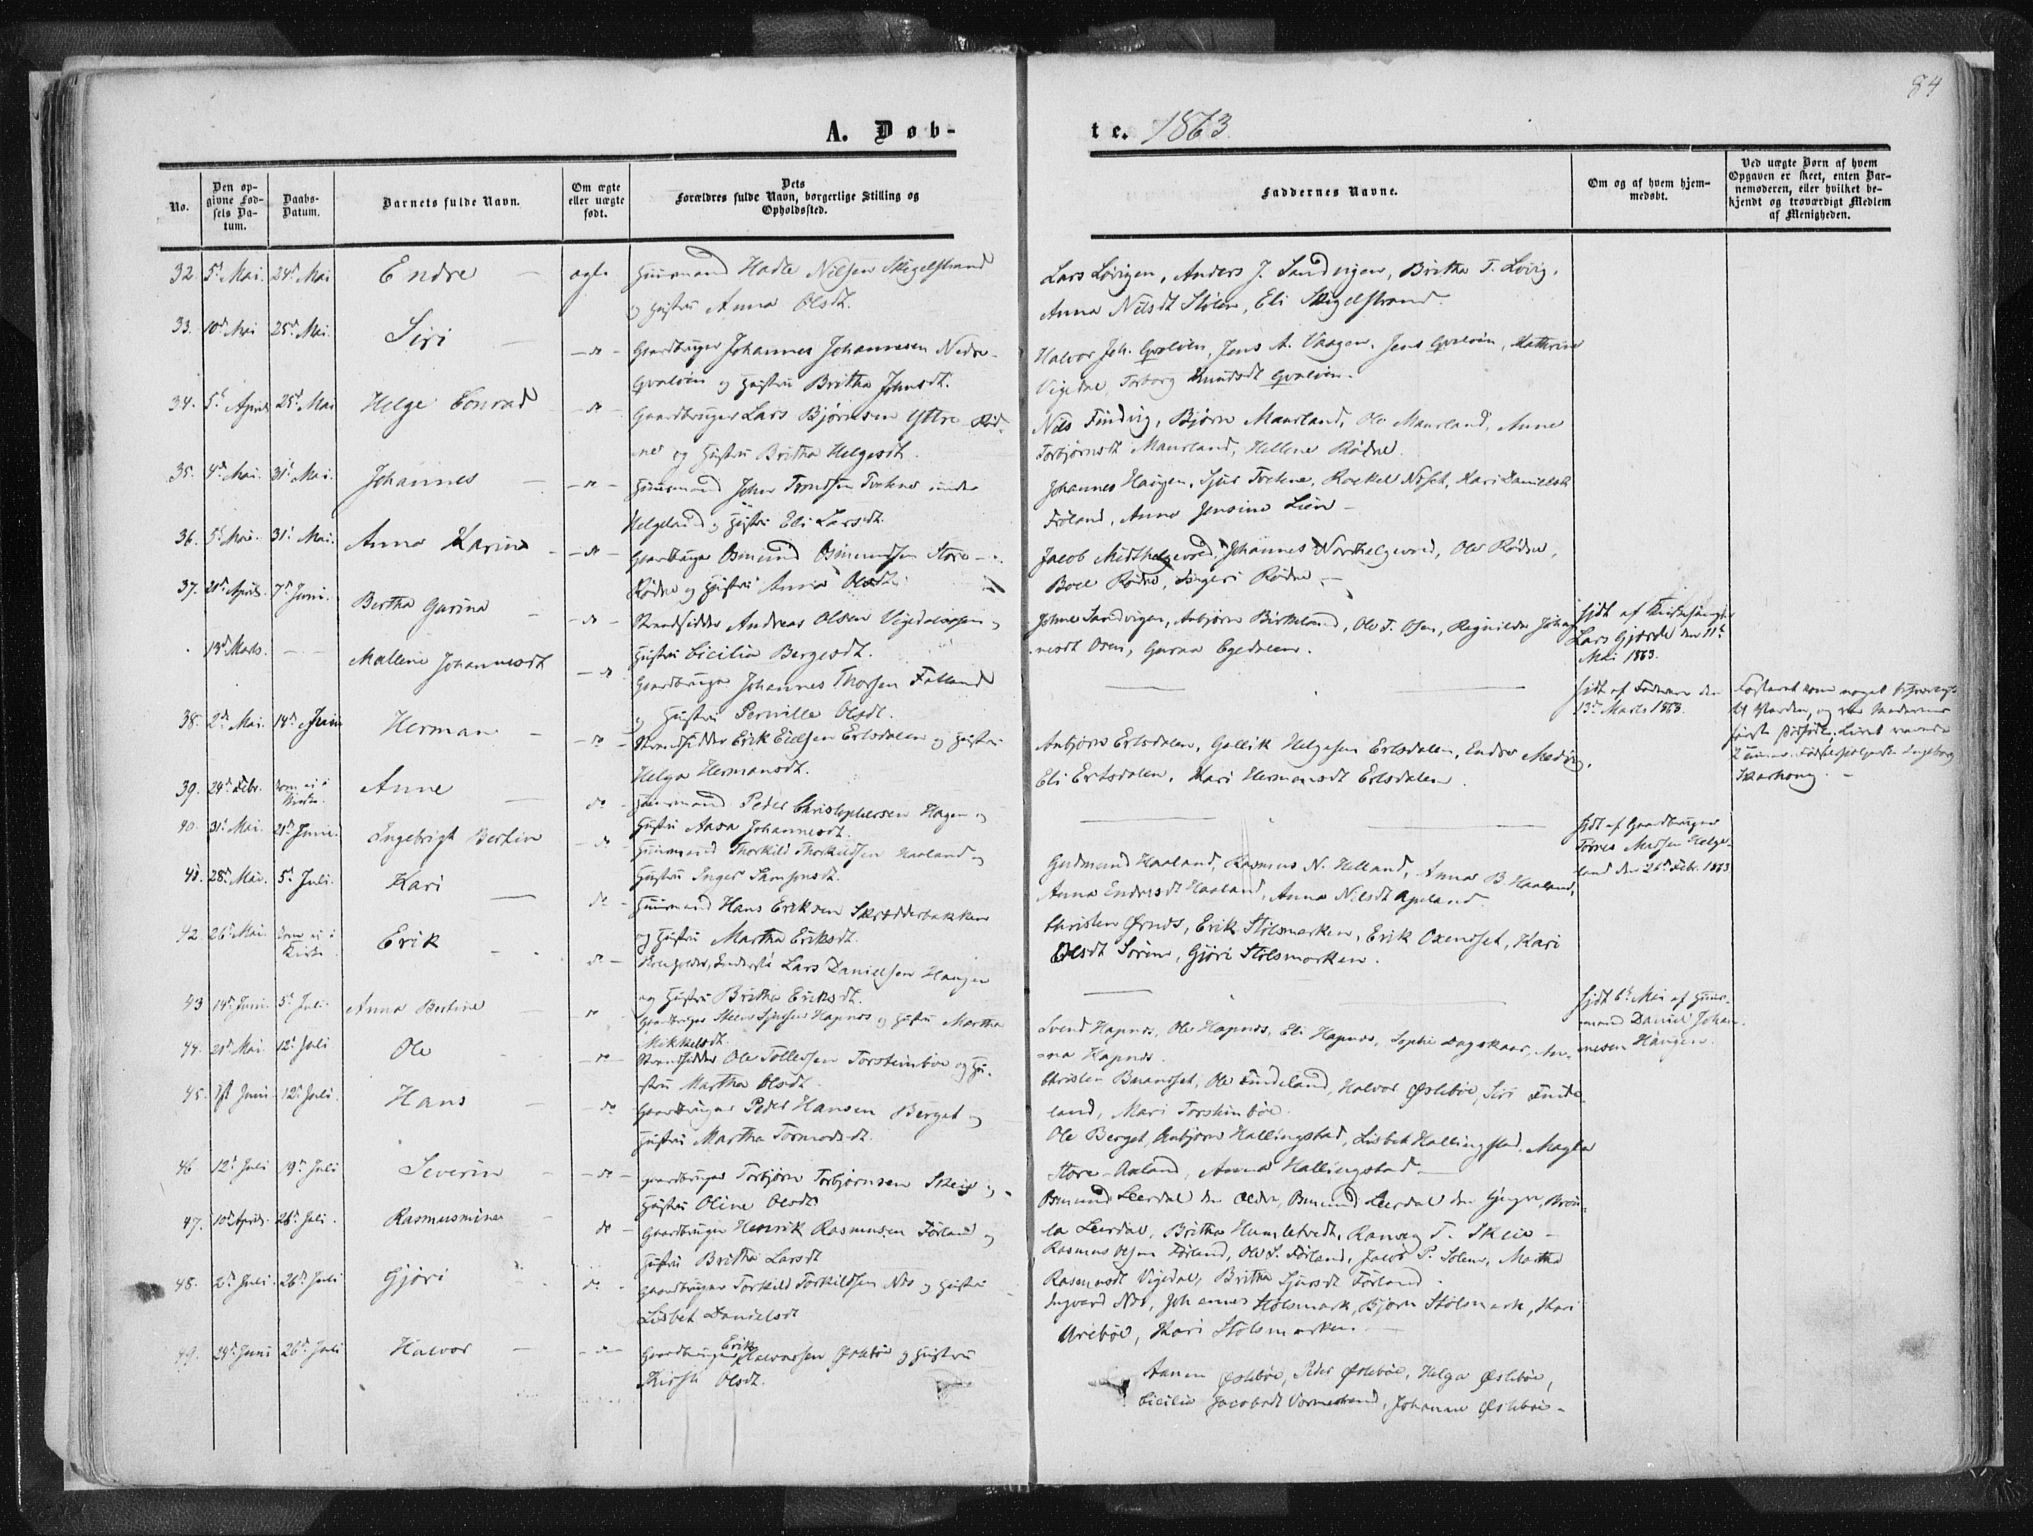 84
A. Døb-
te. 1863
No.
Den op-
givne Fød-
sels Da-
tum.
Daabs-
Datum.
Barnets fulde Navn.
Om ægte
eller uægte
født.
Dets
Forældres fulde Navn, borgerlige Stilling og
Opholdssted.
Faddernes Navne.
Om og af hvem hjem-
medøbt.
Ved uægte Børn af hvem
Opgaven er skeet, enten Bar-
nemoderen, eller hvilket be-
kjendt og troværdigt Medlem
af Menigheden.
32 5t Mai. 24d Mai Endre — ægte Huusmand Hadle Nilsen Skigelstrand
og Hustru Anna Olsdt.
Lars Løvigen, Anders J. Sandvigen, Britha T. Løvig,
Anna Nilsdt Stølen, Eli Skigelstrand.
33. 10d Mai 25d Mai. Siri — do — Gaardbruger Johannes Johannesen Nedre-
Qvaløien og Hustru Britha Johnsdt.
Halvor Joh. Qvaløien, Jens A. Vaagen, Jens Qvaløien, Kathrine
Vigedal, Torborg Knudsdt Qvaløien.
34. 5t April 25d Mai Helge Conrad — do — Gaardbruger Lars Bjørnsen Yttre Rød-
ne og Hustru Britha Helgesdt.
Nils Findvig, Bjørn Maurland, Ole Maurland, Anne
Torbjørnsdt Maurland, Hellene Rødne.
35. 4d Mai. 31t Mai. Johannes — do — Huusmand John Trondsen Tveitene under
Helgeland og Hustru Eli Larsdt.
Johannes Haugen, Sjur Tveitene, Rachel Neset, Kari Danielsdt
Frøland, Anne Jensine Lien —
36. 5t Mai. 31t Mai. Anna Karine — do — Gaardbruger Osmund Osmundsen Store-
Rødne og Hustru Anna Olsdt.
Jacob Midthelgevred, Johannes Northelgevred, Ole Rødne,
Boel Rødne, Ingeri Rødne. —
37. 21d April. 7d Juni. Bertha Gurina — do — Strandsidder Andreas Olsen Vigedalsøren og
Hustru Cicilia Bergesdt.
Johne Sandvigen, Anbjørn Birkeland, Ole T. Osen, Ragnilda Johan-
nesdt Osen, Guroa Egedalen.
hjdt af Kirkesanger
Lars Gjerde den 11te
Mai 1863.
13d Marts. — — Malene Johannesdt — do Gaardbruger Johannes Thorsen Fatland
og Hustru Pernille Olsdt.
hjdt af Faderen den
13d Marts 1863.
38. 2d Mai. 14d Juni Herman — do — Strandsidder Erik Eielsen Ertsdalen og Hustru
Helga Hermansdt.
Anbjørn Ertsdalen, Gullik Helgesen Ertsdalen, Endre Medvig,
Eli Ertsdalen, Kari Hermansdt Ertsdalen.
39. 24d Febr. kom ei i
Kirke. Anne — do — Huusmand Peder Christophersen Hagen og
Hustru Aasa Johannesdt.
hjdt af Gaardbruger
Tørres Madsen Helge-
land den 26d Febr. 1863
40. 31t Mai. 21d Juni. Ingebrigt Bertin — do — Huusmand Thorkild Thorkildsen Haaland og
Hustru Inger Samsonsdt.
Gudmund Haaland, Rasmus N. Helland, Anna B. Haaland,
Anna Endresdt Haaland, Anna Nilsdt Apeland.
41. 28d Mai. 5t Juli. Kari — do — Huusmand Hans Eriksen Skrædderbakken
og Hustru Martha Eriksdt.
Christen Ørnæs, Erik Stølsmarken, Erik Oxenseet, Kari
Olsdt Sørene, Gjøri Stølsmarken.
42. 26d Mai. kom ei i
Kirke. Erik — do — Lars Danielsen Haugen
og Hustru Britha Eriksdt.
hjdt 6te Mai af Huus-
mand Daniel Johan-
nesen Haugen.
43 14d Juni. 5t Juli. Anna Bertine — do Gaardbruger Steen Sjursen Hapnes og Hustru Martha
Mikkelsdt.
Svend Hapnes, Ole Hapnes, Eli Hapnes, Sophi Dagskaar, An-
na Hapnes.
44. 21d Mai. 12t Juli Ole — do — Strandsidder Ole Tollefsen Torsteinbøe og Hu-
stru Martha Olsdt.
Christen Buanoset, Ole Findeland, Halvor Øslebøe, Siri Finde-
land, Mari Torsteinbøe.
45. 1st Juni 12t Juli. Hans — do Gaardbruger Peder Hansen Berget og
Hustru Martha Tormodsdt.
Ole Berget, Anbjørn Hallingstad, Lisbet Hallingstad, Magla
Store-Axland, Anna Hallingstad —
46 12t Juli 19d Juli Severin — do — Gaardbruger Torbjørn Torbjørnsen Skeie og
Hustru Oline Olsdt
Osmund Leerdal den Ældre, Osmund Leerdal den Yngre,
Leerdal, Britha Humletvedt, Ranveg T. Skeie —
47. 10d April. 26d Juli. Rasmusmine — do — Gaardbruger Henrik Rasmussen Førland og
Hustru Britha Larsdt
Rasmus Olsen Førland, Ole S. Førland, Jacob P. Solem, Martha
Rasmusdt Vigedal, Britha Sjursdt Førland.
48. 2d Juli. 26d Juli Gjøri — do — Gaardbruger Torkild Torkildsen Næs og Hustru
Lisbet Danielsdt
Ingvard Næs, Johannes Stølsmark, Bjørn Stølsmark, Kari
Urebøe, Kari Stølsmarken. —
49. 24d Juni 26d Juli Halvor — do — Gaardbruger Erik Halvorsen Øslebøe og Hustru
Kirsti Olsdt.
Aanen Øslebøe, Peder Øslebøe, Helga Øslebøe,
Cicilie Jacobsdt Vormestrand, Johanne Øslebøe —